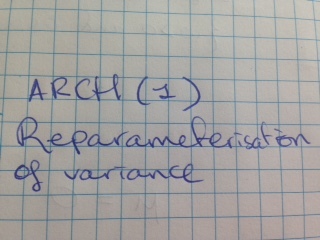 ARCH (1)
Reparameterisation
of variance